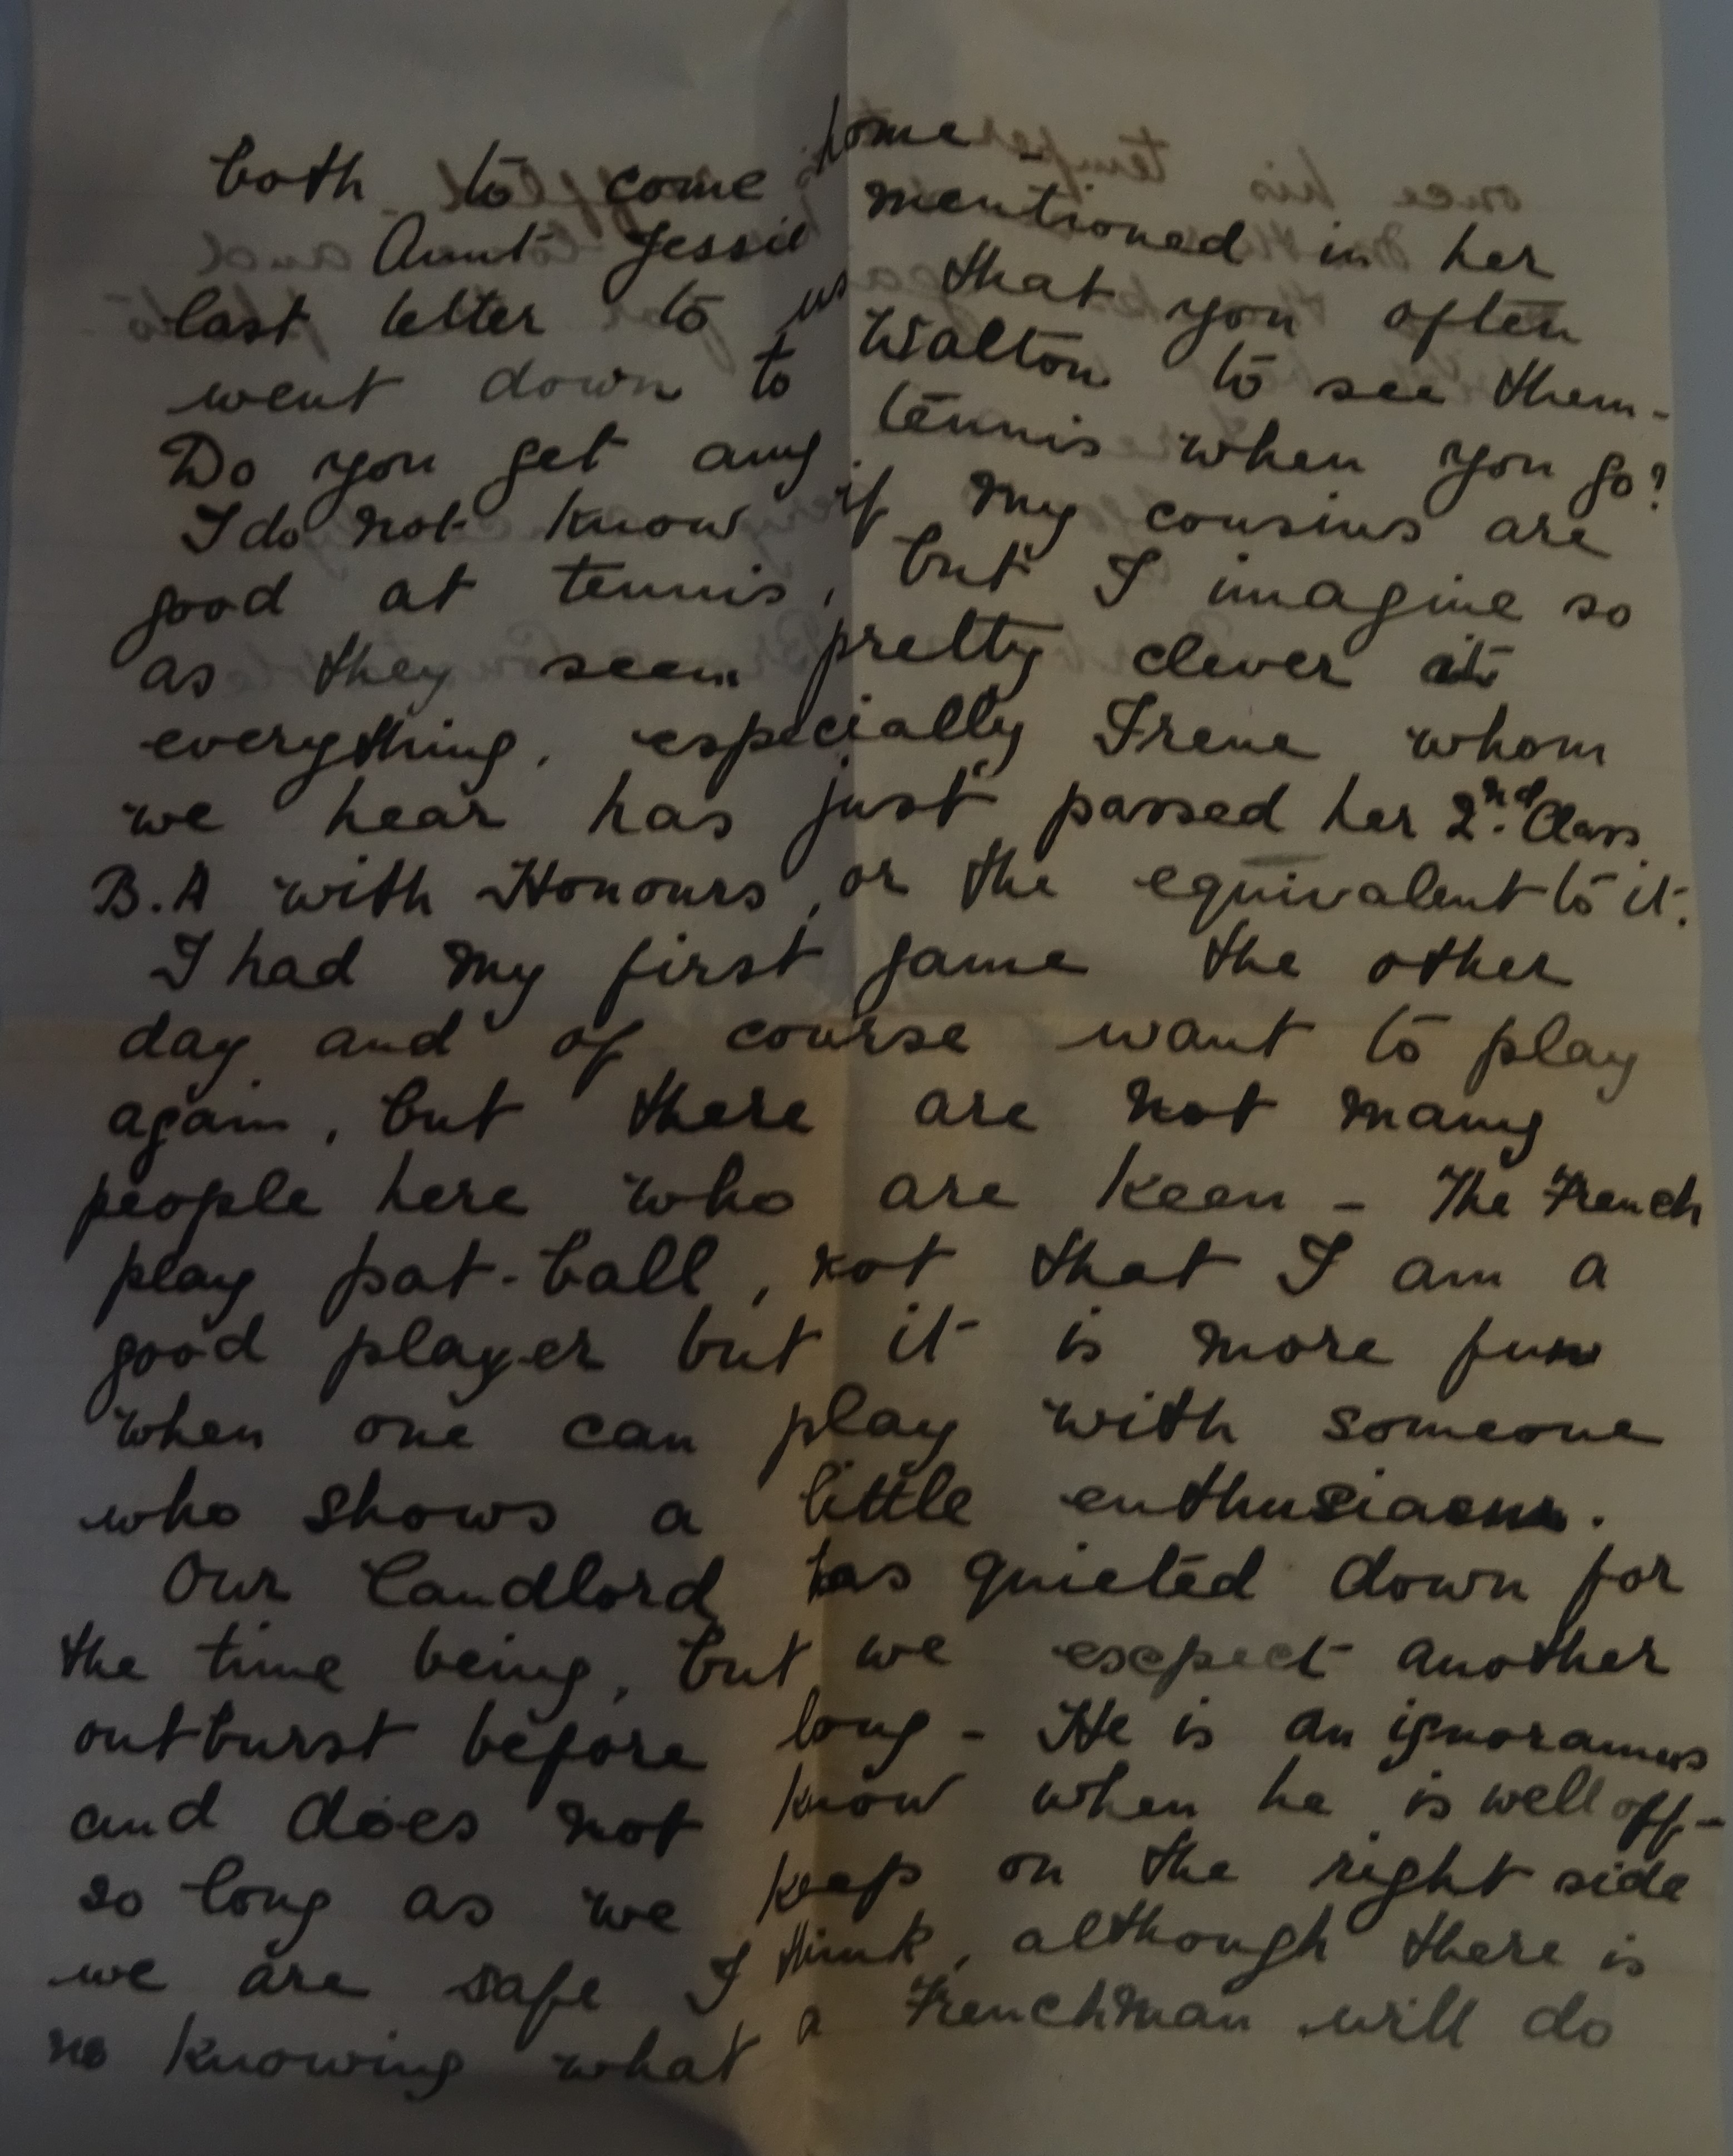 both to come home -
Aunt Jessie mentioned in her
last letter to us that you often
went down to Walton to see them -
Do you get any tennis when you go?
I do not know if my cousins are
good at tennis, but I imagine so
as they seem pretty clever at
everything, especially Irene whom
we hear has just passed her 2nd. Class
B.A with Honours, or the equivalent to it.
I had my first game the other
day and of course want to play
again, but there are not many
people here who are keen - The French
play pat-ball, not that I am a
good player but it is more fun
when one can play with someone
who shows a little enthusiasm.
Our landlord has quieted down for
the time being, but we expect another
outburst before long - He is an ignoramus
and does not know when he is well off -
so long as we keep on the right side
we are safe I think, although there is
no knowing what a Frenchman will do